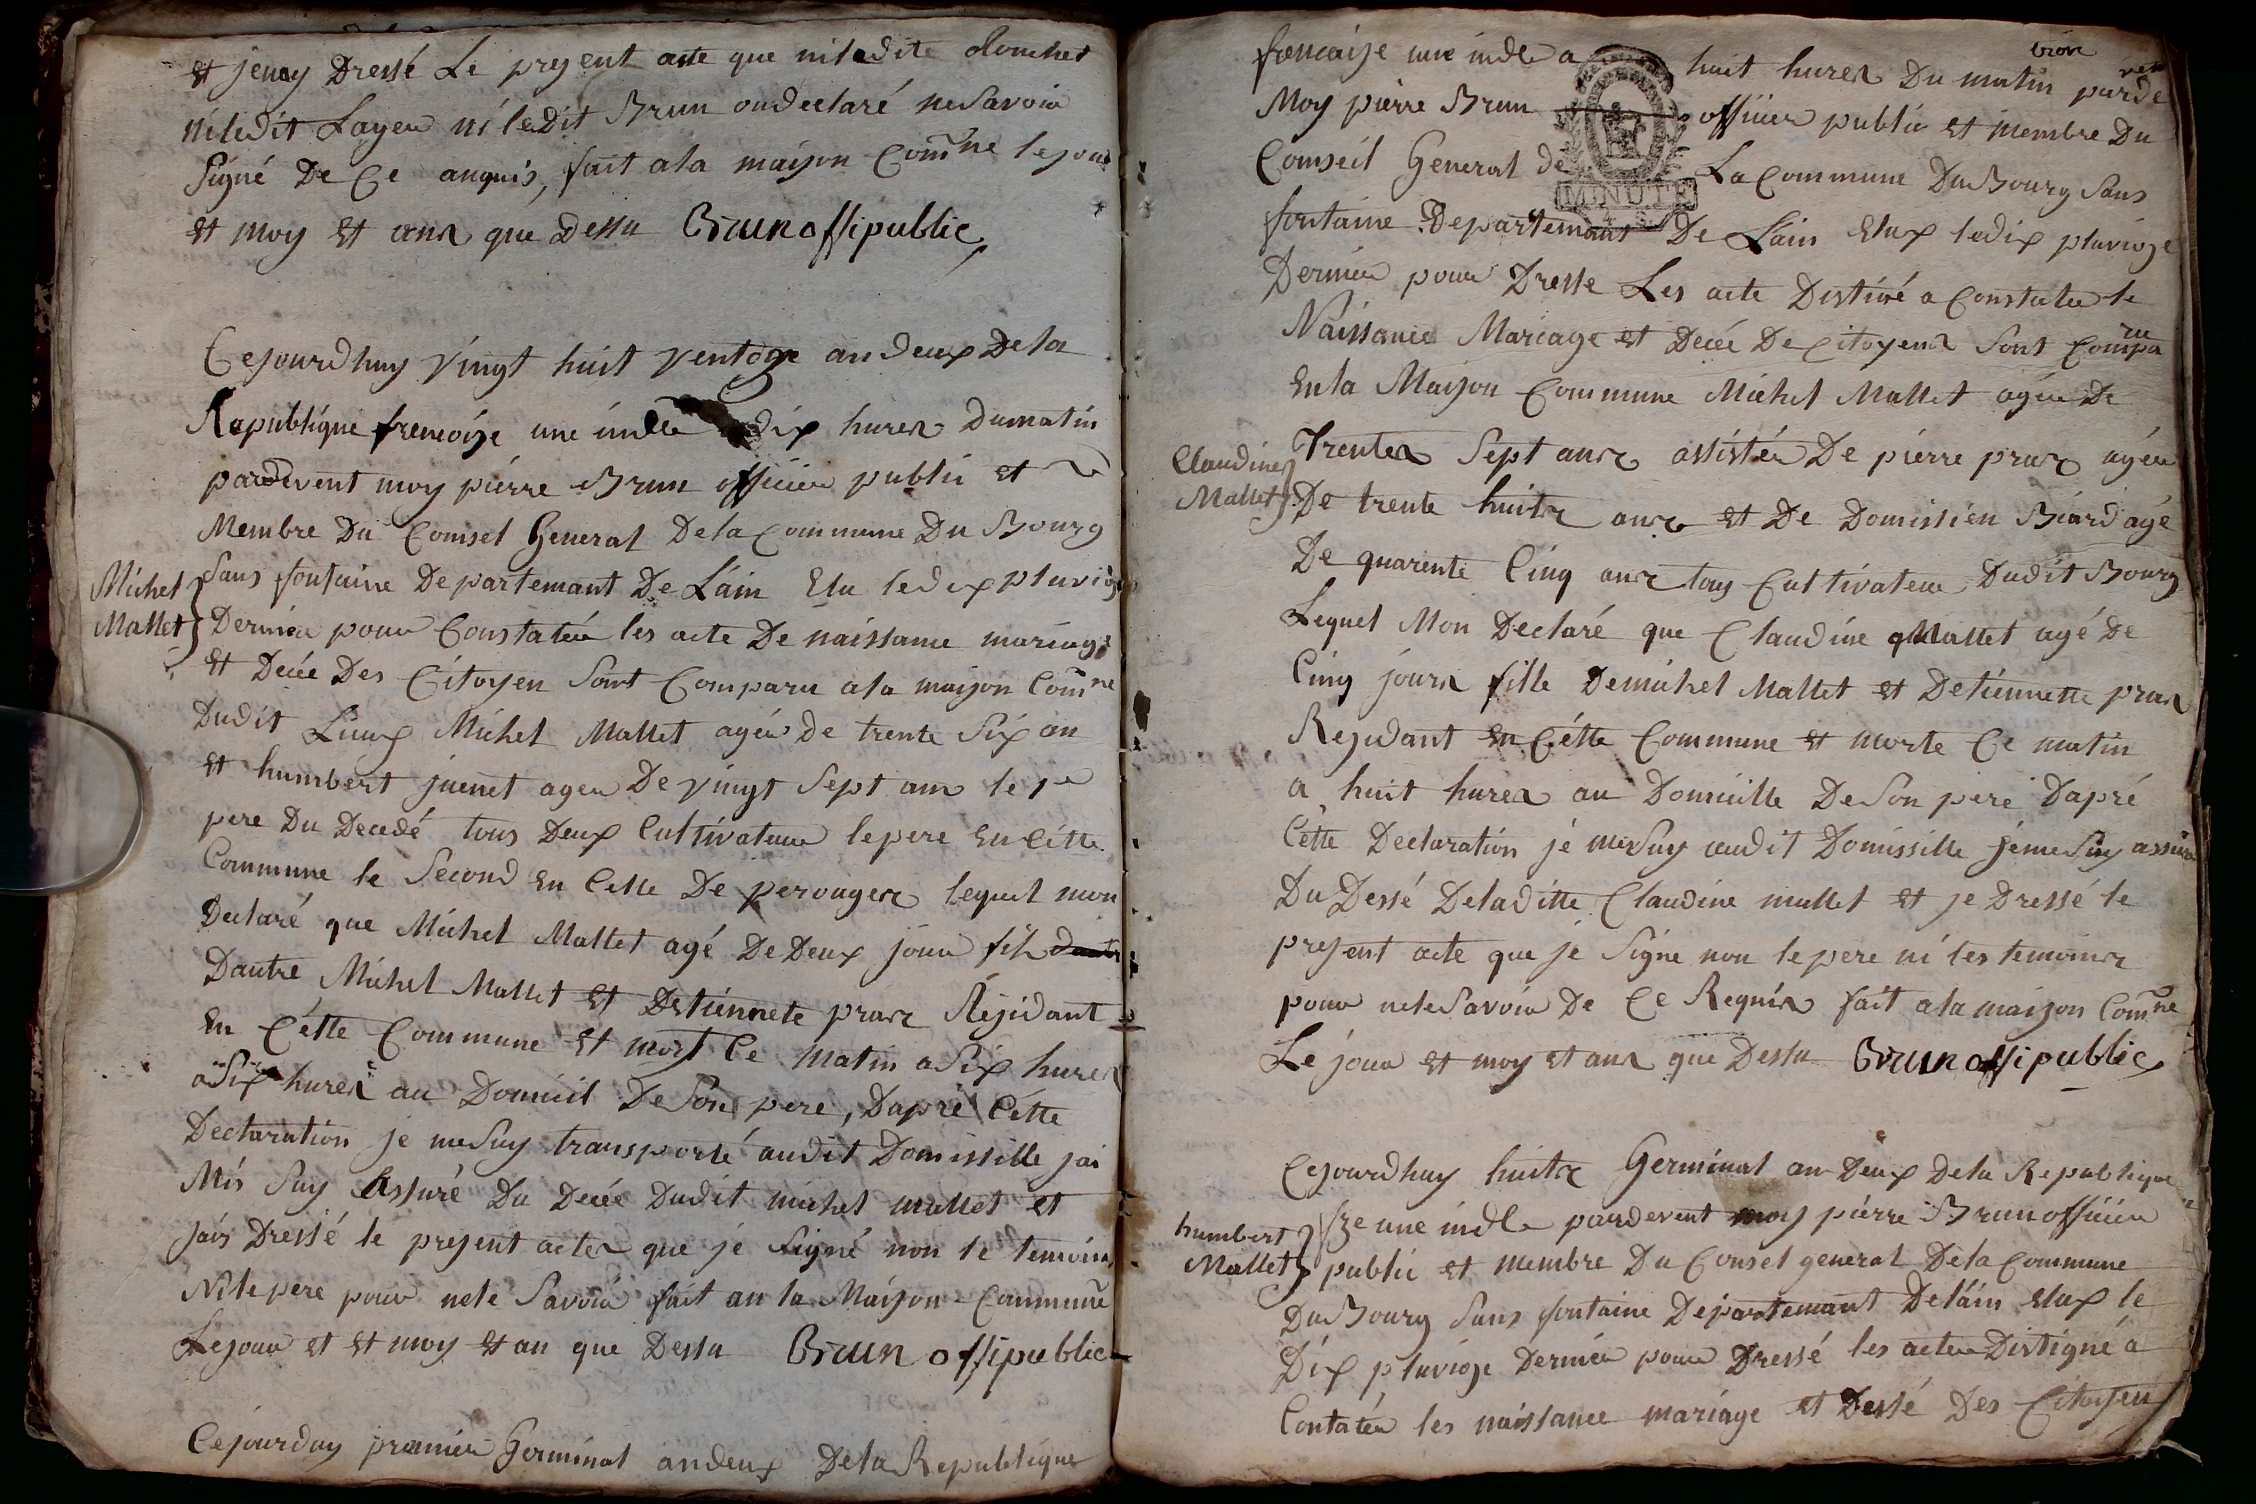 et jenay Dressé Le present acte que niledite douchet
niledit Layer ni ledit Brun ondeclaré nesavoir
Signé De Ce anquis, fait ala maison Comne lejour
et moy et ans que Dessu Brun offipublic
Cejourdhuy vingt huit ventoze an deux Dela
Republique francoize une indle a dix hures Dumatin
pardevent moy pierre Brun officier public et
Membre Du Consel General Dela Commune Du Bourg
Michel
Mallet
Sans fontaine Departemant De Lain Elu ledix pluvioz
Dernier pour Constatéer les acte De naissance mariage
et Decée Des Citoyen Sont Comparu ala maizon Comne
Dudit Lieux Michel Mallet agéer de trente Six an
et humbert juenet ager De vingt Sept ans le 1er
pere Du Decedé tous Deux Cultivateur lepere En Cette
Commune le Second En Celle De perouger lequel mon
Declaré que Michel Mallet agé De Deux jour fils
Dautre Michel Mallet et Detiennete prar Résidant
En Cétte Commune et mort Ce matin a Six hures
a Six hures au Domicil De Son pere, Dapré Cétte
Declaration je me Suy transporté audit Domissille jai
Mis Suy Assuré Du Decée Dudit michel mallet et
jais Dressé le present acter que je Signé non le temoins
Ni le pere pour nele Savoir fait an la Maison Commune
Lejour et et moy et an que Dessu Brun offipublic
Cejourduy premier Germinal andeux Dela Republique
francaise une indle a huit hures Du matin parde
vion
ven
Moy pierre Brun officier public et membre Du
Comseil General de La Commune DuBourg Sans
MINUTE
fontaine Departemant De Lain Elux ledix pluvioze
Dernier pour Dresse Les acte Distiné a Constater le
Naissance Mariage et Decée De Citoyens Sont Compa
ru
En la Maison Commune Michel Mallet agéer De
Claudine
Mallet
Trentes Sept ans assistéer De pierre prar agéer
De trente huits ans et De Domissien Biard agé
De quarente Cinq ans tous Cultivateur Dudit Bourg
Lequel Mon Declaré que Claudine Mallet agé De
Cinq jours fille Demichel Mallet et Detiennette prar
Residant En Cétte Commune et morte Ce matin
a huit hures au Domicille De Son pere Dapré
Cétte Declaration je me Suy audit Domissille je me Suy assuré
Du Dessé Deladitte Claudine mallet et je Dressé le
present acte que je Signe non le pere ni les temoins
pour nele Savoir De Ce Requis fait ala maison Comne
Le jour et moy et ans que Dessu Brun offipublic
Cejourdhuy huits Germinal an Deux Dela Republique
humbert
Mallet
fze une indle pardevent moy piérre Brun officier
public et membre Du Consel general Dela Commune
Du Bourg Sans fontaine Departemant Delain Elux le
Dix pluvioze Dernier pour Dressé les acter Distigné a
Contatéer les naissance mariage et Dessé Des Citoyen